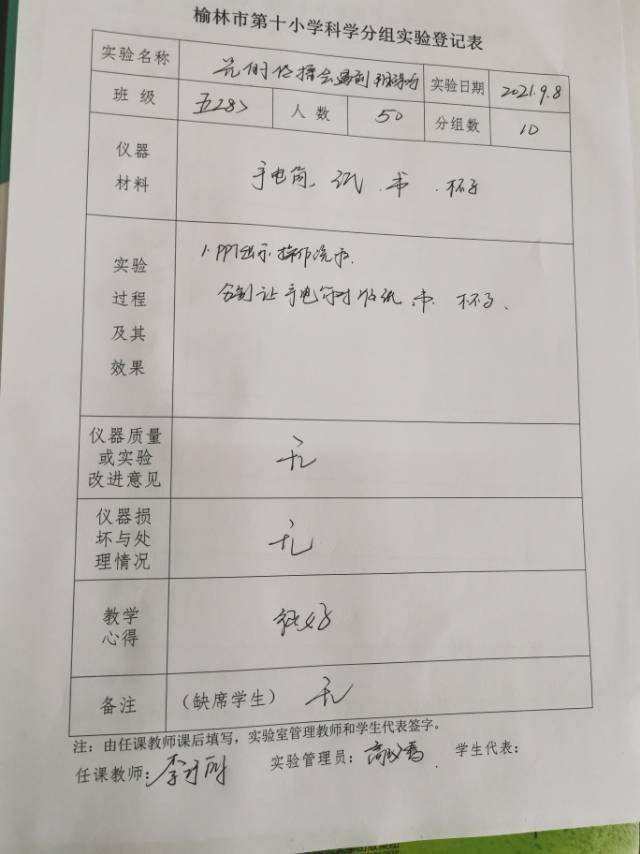 榆林市第十小学科学分组实验登记表
实验名称 光的传播会遇到 实验日期 2021.9.8
班级 五 人数 50 分组数 10
仪器材料 手电筒、纸、书、杯子
实验过程及其效果 1. PPT出示操作提示.
分别让手电筒对准纸、书、杯子、
仪器质量或实验改进意见 无
仪器损坏与处理情况 无
教学心得 较好
备注 (缺席学生) 无
注：由任课教师课后填写，实验室管理教师和学生代表签字。
任课教师: 李 实验管理员: 高 学生代表: